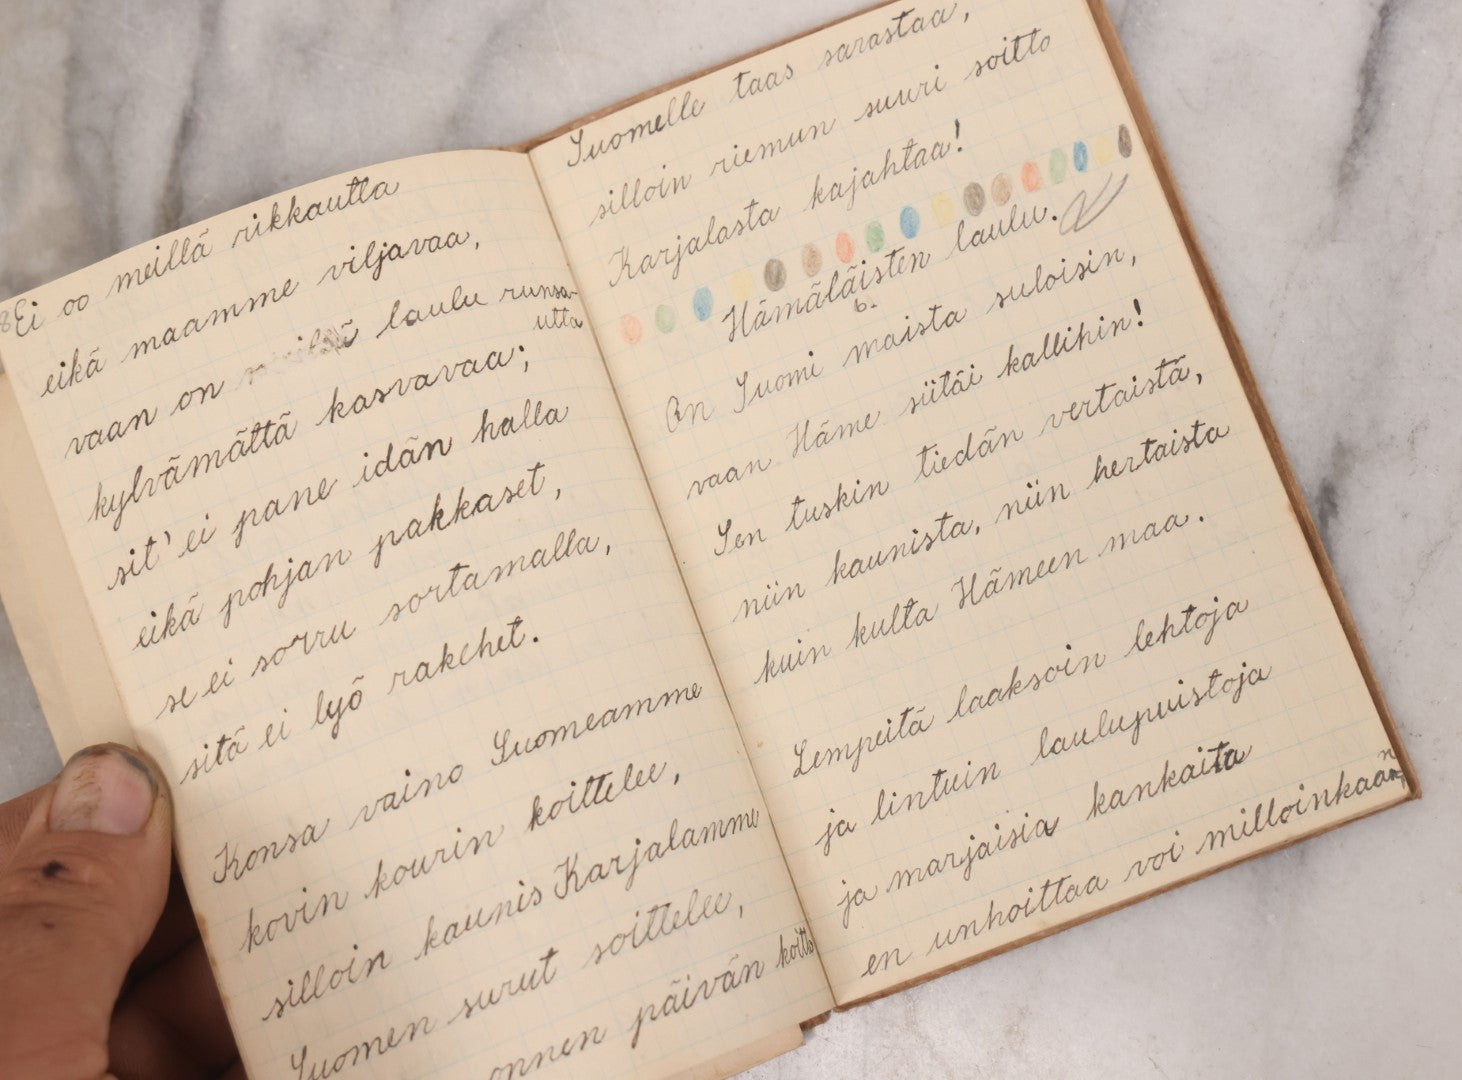 Ei oo meillä rikkautta
eikä maamme viljavaa,
vaan on laulu runsa-
utta
kylvämättä kasvavaa;
sit' ei pane idän halla
eikä pohjan pakkaset,
se ei sorru sortamalla,
sitä ei lyö rakehet.
Konsa vaino Suomeamme
kovin kourin koittelee,
silloin kaunis Karjalamme
Suomen surut soittelee,
onnen päivän koitto
Suomelle taas sarastaa,
silloin riemun suuri soitto
Karjalasta kajahtaa!
Hämäläisten laulu.
6.
On Suomi maista suloisin,
vaan Häme siitäi kallihin!
Sen tuskin tiedän vertaista,
niin kaunista, niin hertaista
kuin kulta Hämeen maa.
Lempeitä laaksoin lehtoja
ja lintuin laulupuistoja
ja marjaisia kankaita
en unhoittaa voi milloinkaan